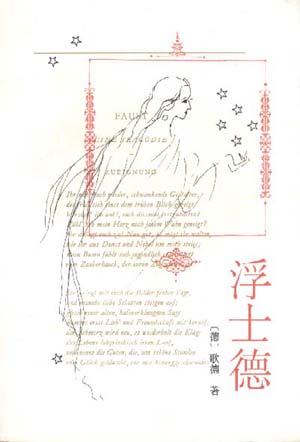 FAUST
EINE TRAGÖDIE
ZUEIGNUNG
Ihr naht euch wieder, schwankende Gestalten,
die früh sich einst dem trüben Blick gezeigt.
ich euch diesmal
Fühl' ich mein Herz noch jenem Wahn geneigt?
Ihr euch zu! Nun gut, so mögt ihr walten,
wie ihr aus Dunst und Nebel um mich steigt;
mein Busen fühlt sich jugendlich
vom Zauberhauch, der euren Zug
Ihr bringt mit euch die Bilder froher Tage,
und manche liebe Schatten steigen auf;
gleich einer alten, halbverklungnen Sage
kommt erste Lieb' und Freundschaft mit herauf;
der Schmerz wird neu, es wiederholt die Klage
des Lebens labyrinthisch irren Lauf,
und nennt die Guten, die, um schöne Stunden
vom Glück getäuscht, vor mir
浮士德
〔德〕歌德 著